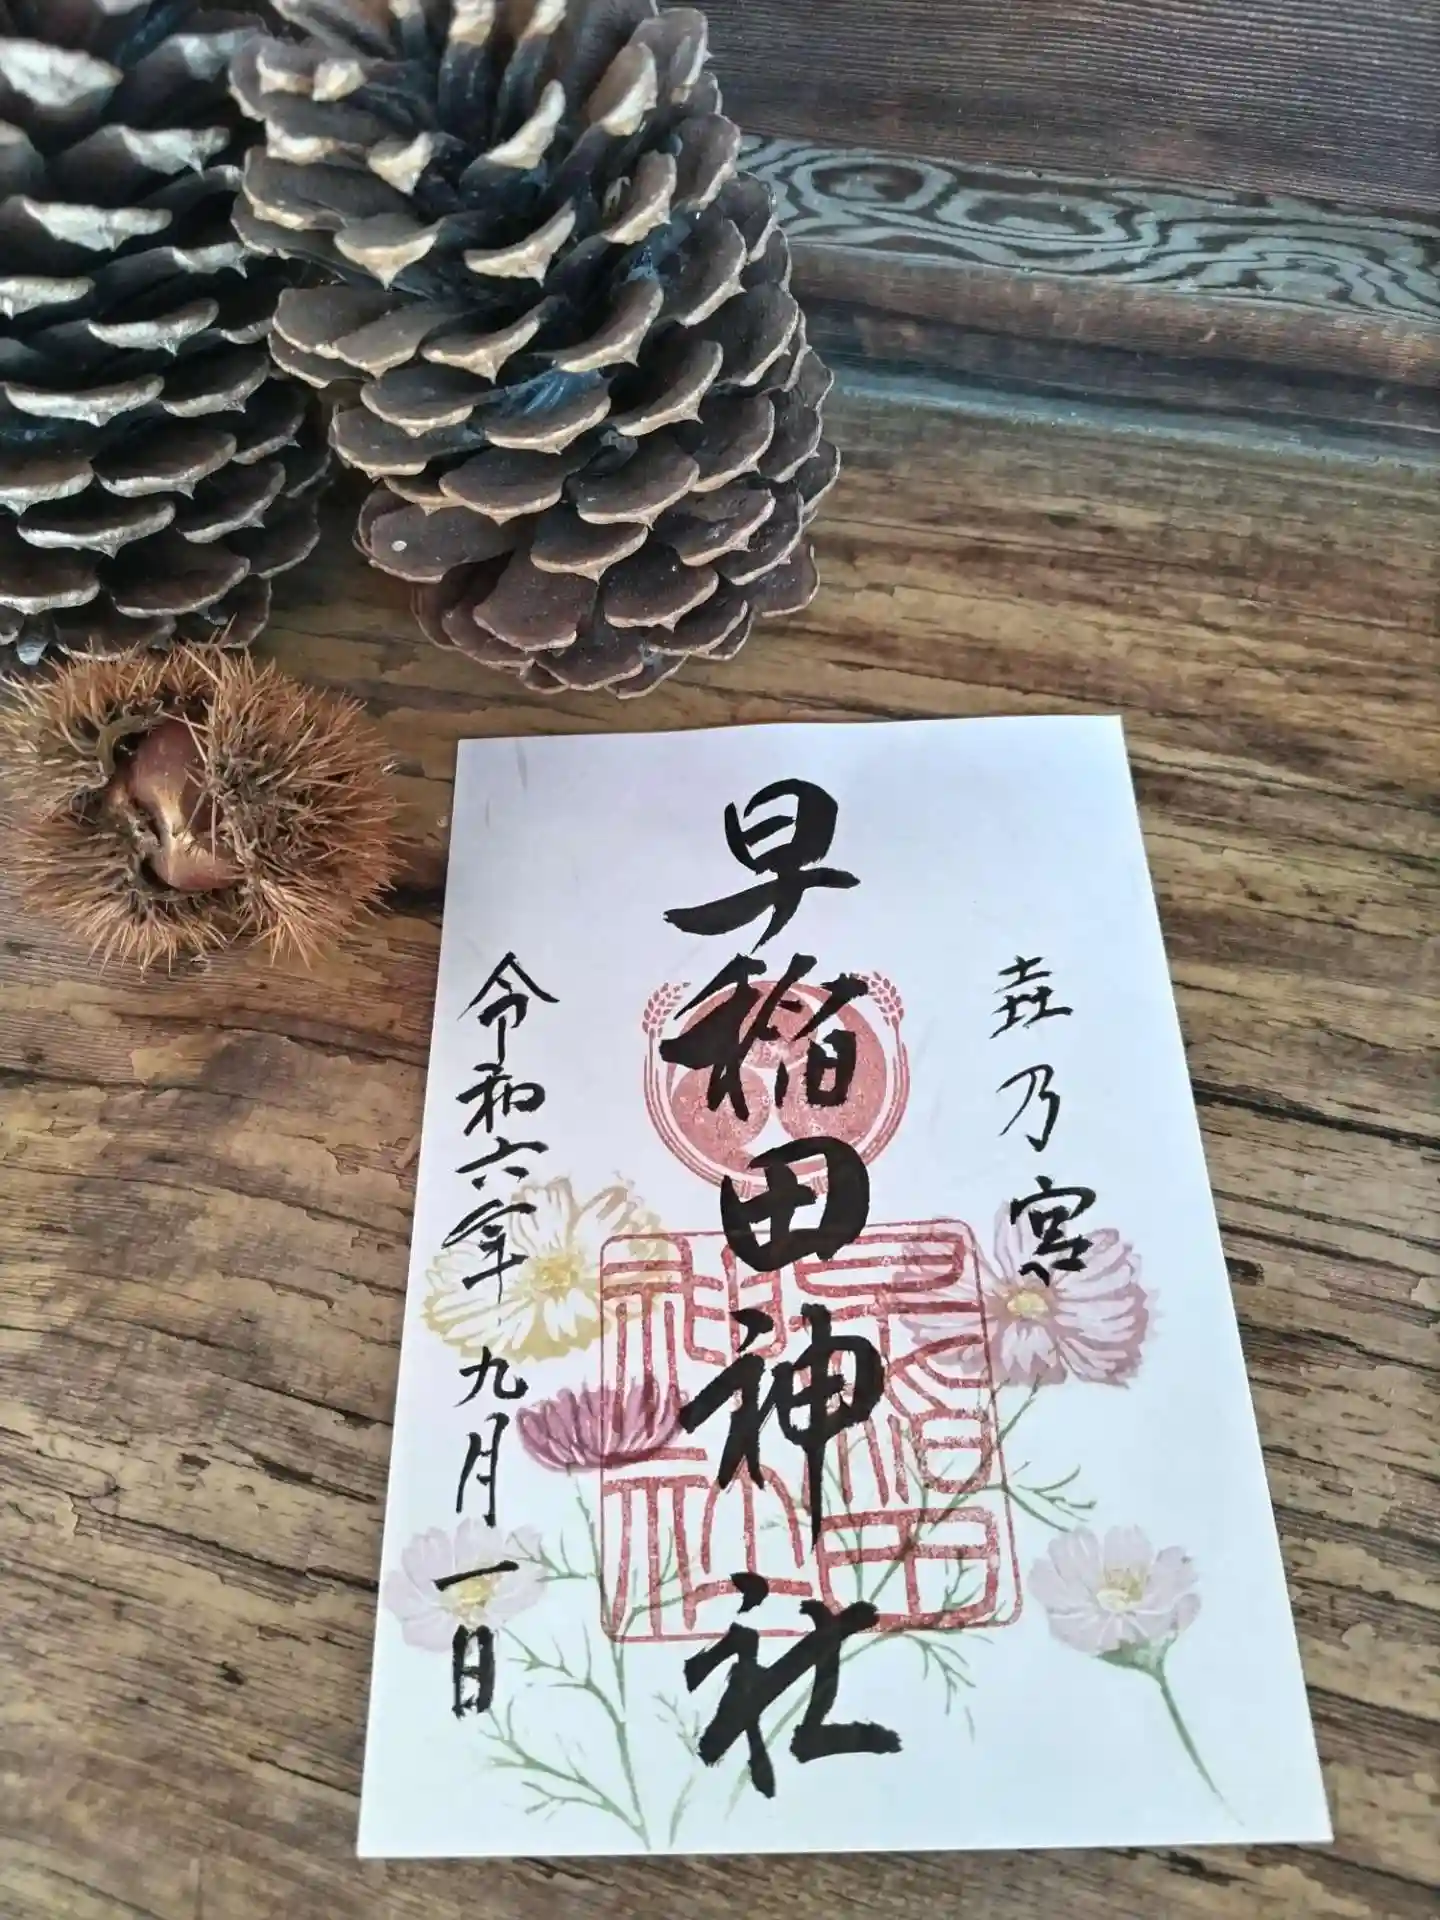 乃宮
早稲田神社
令和六年九月一日
早稲田
神社